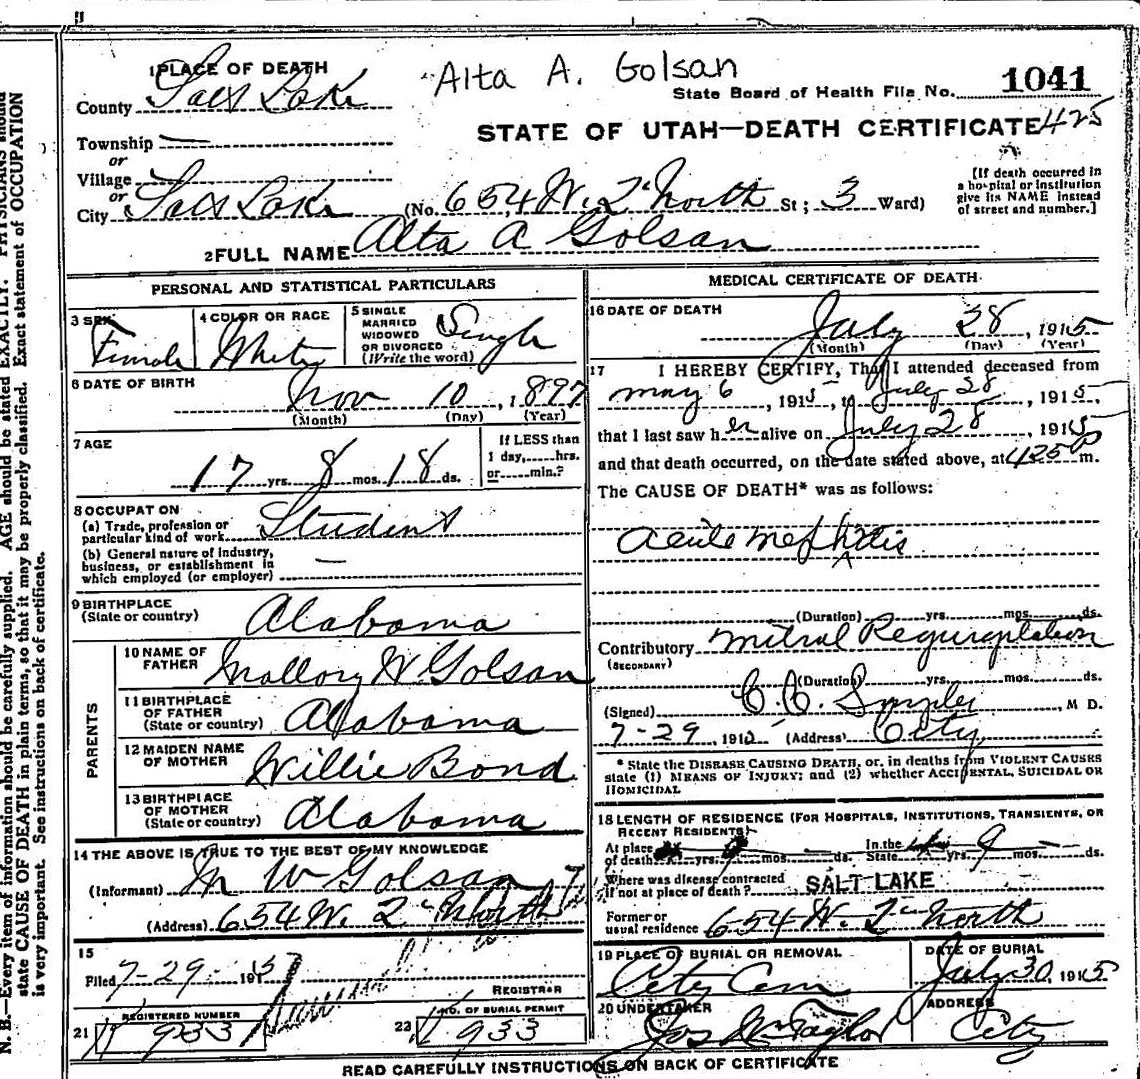 1 PLACE OF DEATH
Alta A. Golsan
County Salt Lake
State Board of Health File No. 1041
Township —
STATE OF UTAH—DEATH CERTIFICATE 425
or
Village
or
City Salt Lake (No. 654 W. 2" North St; 3 Ward)
[If death occurred in
a hospital or institution
give its NAME instead
of street and number.]
2 FULL NAME Alta A Golsan
PERSONAL AND STATISTICAL PARTICULARS
3 SEX
Female
4 COLOR OR RACE
White
5 SINGLE
MARRIED
WIDOWED
OR DIVORCED
(Write the word)
Single
6 DATE OF BIRTH
Nov 10, 1897
(Month) (Day) (Year)
7 AGE
17 yrs. 8 mos. 18 ds.
If LESS than
1 day,......hrs.
or......min.?
8 OCCUPATION
(a) Trade, profession or
particular kind of work Student
(b) General nature of industry,
business, or establishment in
which employed (or employer) —
9 BIRTHPLACE
(State or country) Alabama
PARENTS
10 NAME OF
FATHER Mallory W Golsan
11 BIRTHPLACE
OF FATHER
(State or country) Alabama
12 MAIDEN NAME
OF MOTHER Willie Bond
13 BIRTHPLACE
OF MOTHER
(State or country) Alabama
14 THE ABOVE IS TRUE TO THE BEST OF MY KNOWLEDGE
(Informant) M W Golsan
(Address) 654 W. 2" North
15
Filed 7-29- 1915
REGISTRAR
21 REGISTERED NUMBER
933
22 NO. OF BURIAL PERMIT
933
MEDICAL CERTIFICATE OF DEATH
16 DATE OF DEATH
July 28, 1915
(Month) (Day) (Year)
17 I HEREBY CERTIFY, That I attended deceased from
May 6, 1915, to July 28, 1915,
that I last saw her alive on July 28, 1915
and that death occurred, on the date stated above, at 425 P m.
The CAUSE OF DEATH* was as follows:
Acute Nephritis
(Duration) yrs. mos. ds.
Contributory Mitral Regurgitation
(SECONDARY)
(Duration) yrs. mos. ds.
(Signed) M D.
7-29, 1915 (Address) City
* State the DISEASE CAUSING DEATH, or, in deaths from VIOLENT CAUSES
state (1) MEANS OF INJURY; and (2) whether ACCIDENTAL, SUICIDAL OR
HOMICIDAL
18 LENGTH OF RESIDENCE (FOR HOSPITALS, INSTITUTIONS, TRANSIENTS, OR
RECENT RESIDENTS)
At place
of death yrs. mos. ds. In the
State yrs. 9 mos. — ds.
Where was disease contracted
if not at place of death? SALT LAKE
Former or
usual residence 654 W. 2" North
19 PLACE OF BURIAL OR REMOVAL
City Cem
DATE OF BURIAL
July 30, 1915
20 UNDERTAKER
Jos Wm Taylor
ADDRESS
City
READ CAREFULLY INSTRUCTIONS ON BACK OF CERTIFICATE
N. B.—Every item of information should be carefully supplied. AGE should be stated EXACTLY. PHYSICIANS should
state CAUSE OF DEATH in plain terms, so that it may be properly classified. Exact statement of OCCUPATION
is very important. See instructions on back of certificate.